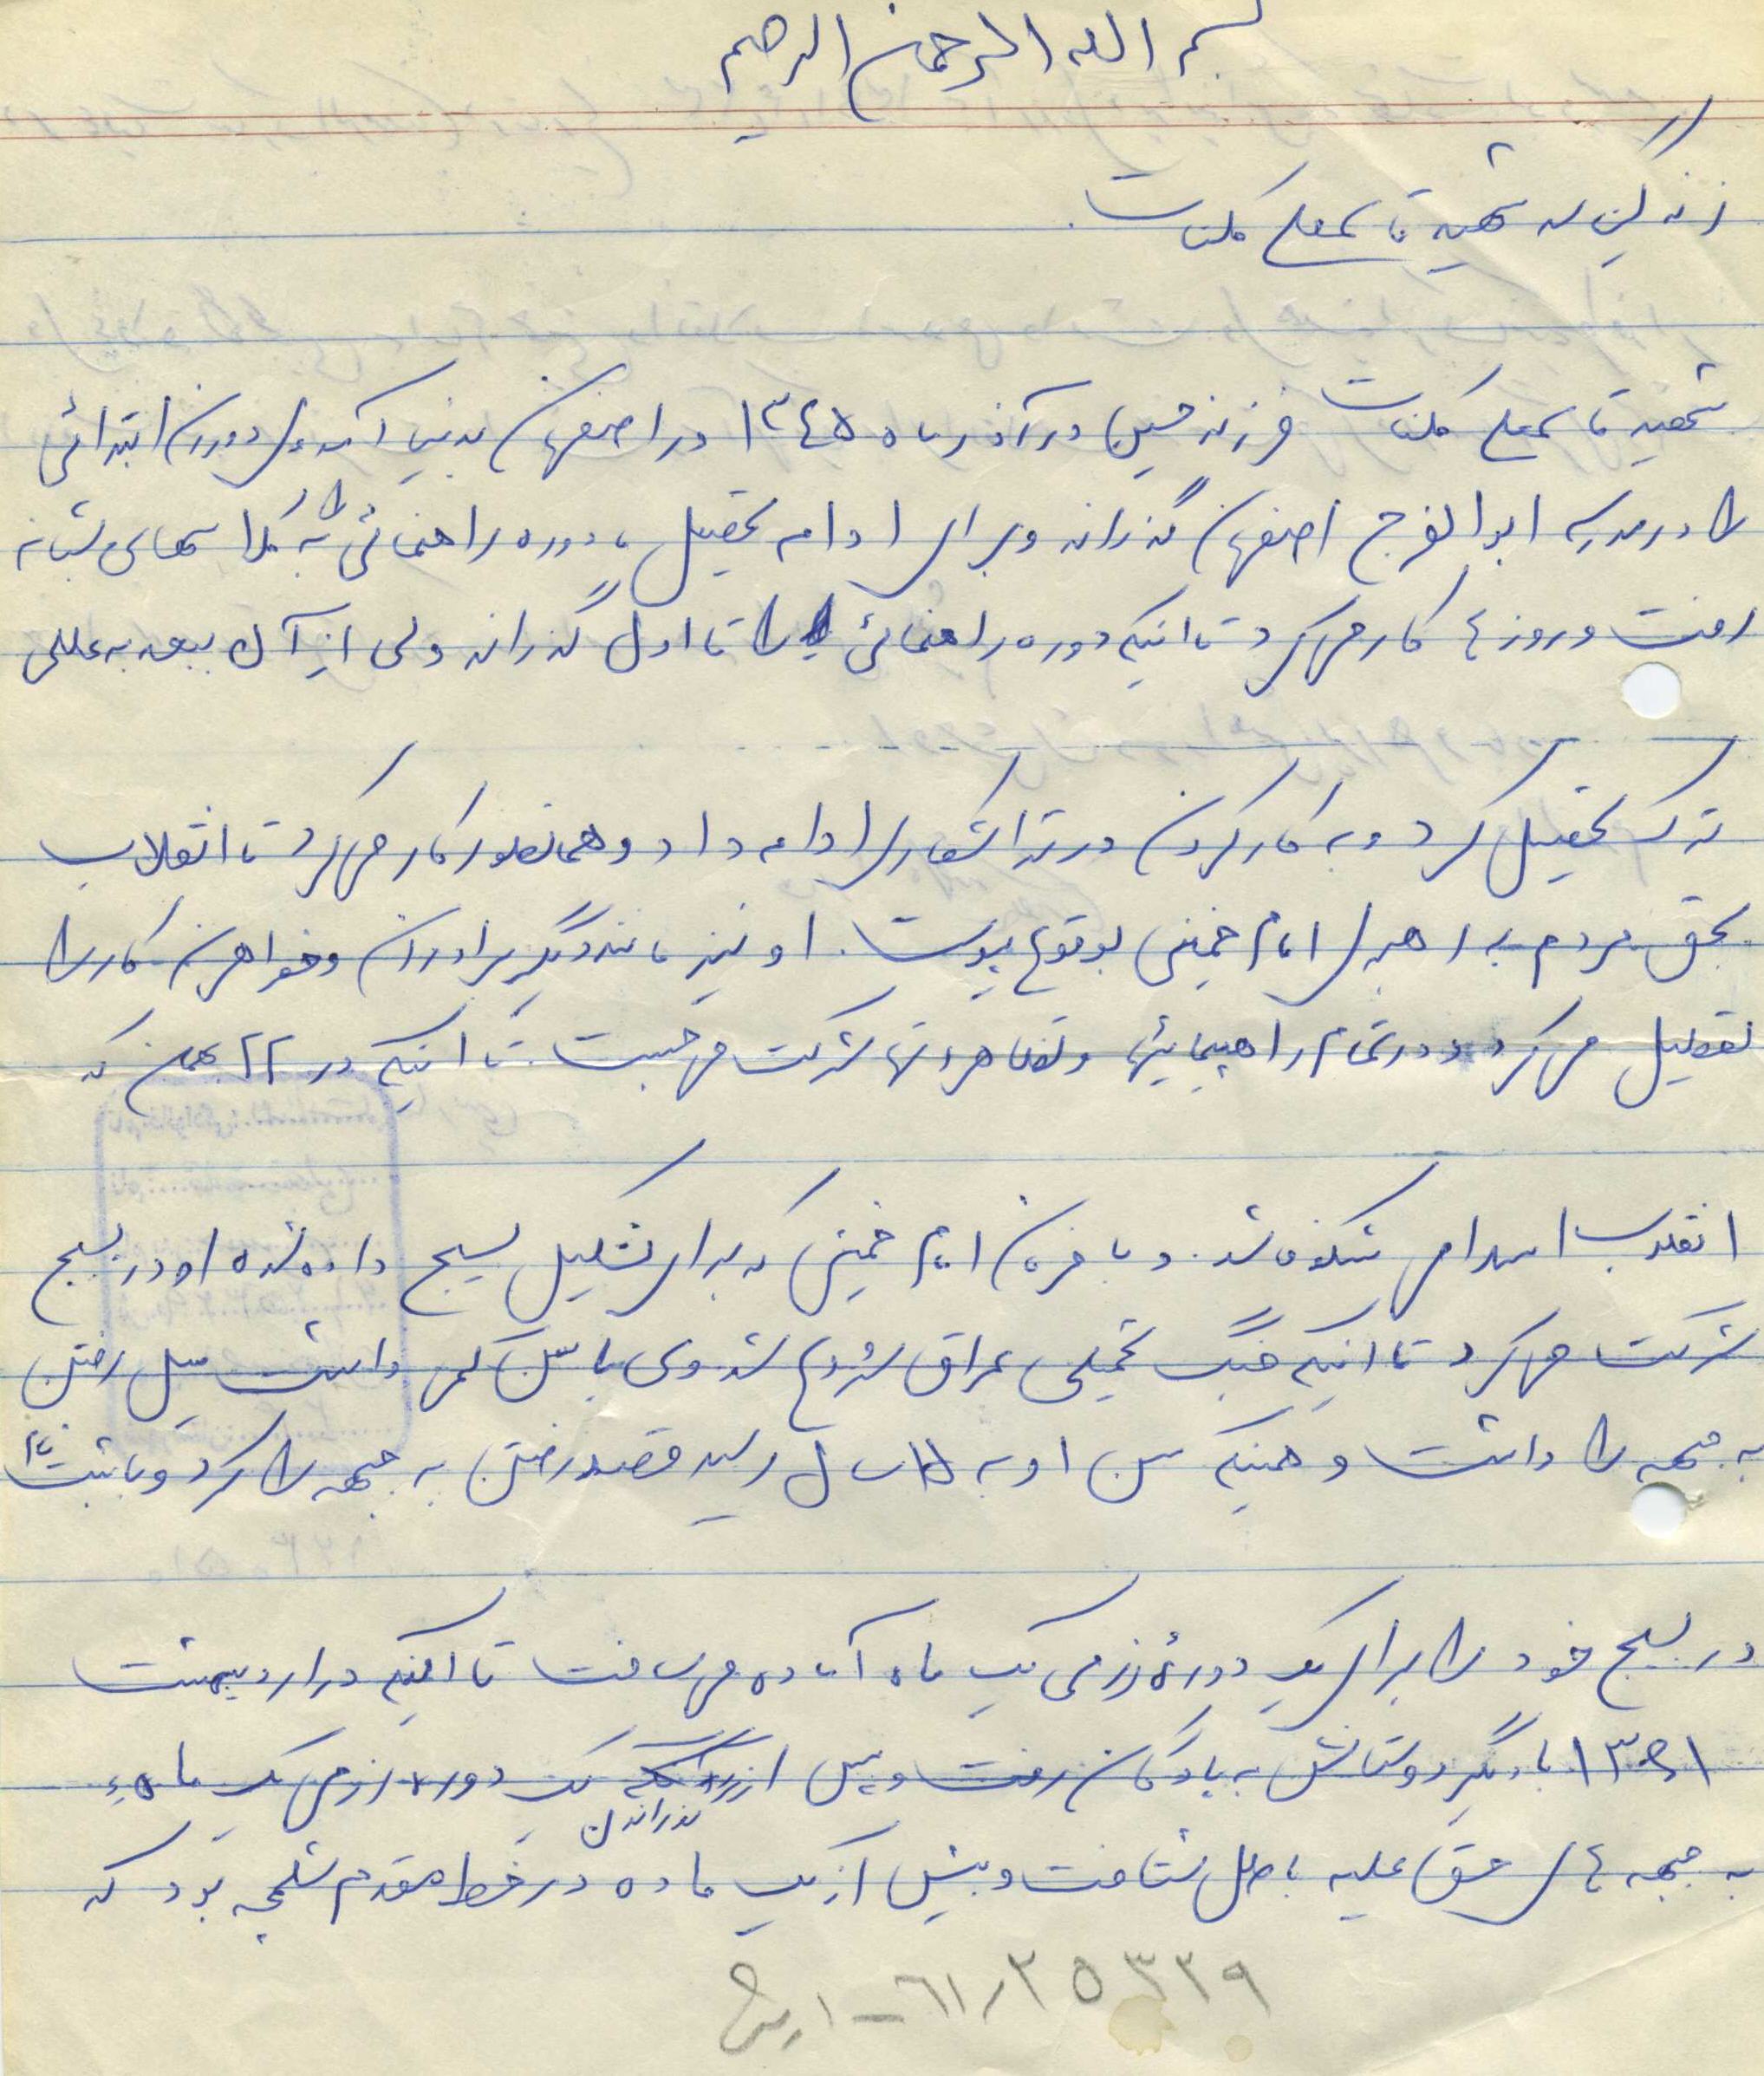 بسم الله الرحمن الرحیم
زندگینامه شهید قاسمعلی گلنات
شهید قاسمعلی گلنات فرزند حسین در آذر ماه ۱۳۴۵ در اصفهان بدنیا آمد. دوران ابتدائی
را در مدرسه ابوالفرج اصفهان گذراند و برای ادامه تحصیل، دوره راهنمائی را به کلاسهای شبانه
رفت و روزها کار میکرد تا اینکه دوره راهنمائی را تا اول گذراند ولی از آن بعد به عللی
ترک تحصیل کرد و به کار کردن در تراشکاری ادامه داد و همانطور کار میکرد تا انقلاب
بحق مردم به رهبری امام خمینی بوقوع پیوست. او نیز مانند دیگر برادران و خواهران کار را
تعطیل میکرد و در تمام راهپیمائیها و تظاهراتها شرکت می‌جست. تا اینکه در ۲۲ بهمن که
انقلاب اسلامی شکوفا شد. و با فرمان امام خمینی که برای تشکیل بسیج داده شده او در بسیج
شرکت میکرد تا اینکه جنگ تحمیلی عراق شروع شد وی با سن کمی داشت میل رفتن
به جبهه را داشت و همینکه سن او به ۱۵ سال رسید قصد رفتن به جبهه را کرد و با ثبت نام
در بسیج خود را برای یک دورهٔ رزمی یک ماه آماده می‌ساخت تا اینکه در اردیبهشت
۱۳۶۱ با دیگر دوستانش به پادگان رفت و پس از گذراندن یک دوره رزمی یک ماهه
به جبهه های حق علیه باطل شتافت و بیش از یک ماه در خط مقدم شلمچه بود که
۶۱/۲۵۳۲۹ - ۱